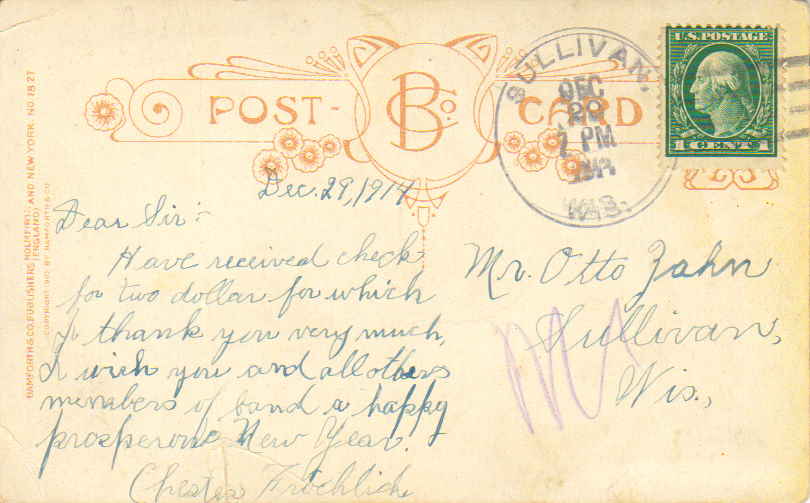 POST CARD
B Co.
SULLIVAN,
DEC
29
PM
WIS.
U.S. POSTAGE
1 CENTS 1
BAMFORTH & CO. PUBLISHERS HOLMFIRTH (ENGLAND) AND NEW YORK. NO. 1827
COPYRIGHT 1910 BY BAMFORTH & CO
Dec. 29, 1914
Dear Sir:-
Have received check
for two dollar for which
I thank you very much,
I wish you and all others
members of band a happy
prosperous New Year.
Chester Froehlich
Mr. Otto Zahn
Sullivan,
Wis.,